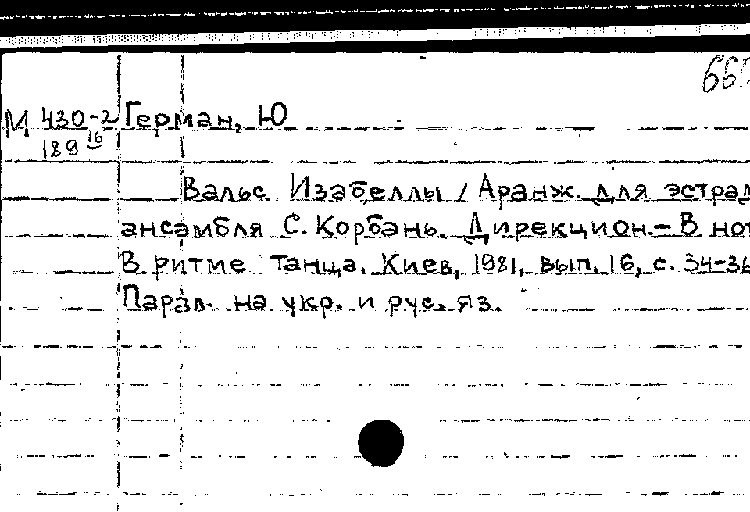 66
М 430-2 Герман, Ю
189 16
Вальс Изабеллы / Аранж. для эстрад
ансамбля С. Корбань. Дирекцион. - В нот
В ритме танца. Киев, 1981, вып. 16, с. 34-36
Парал. на укр. и рус. яз.